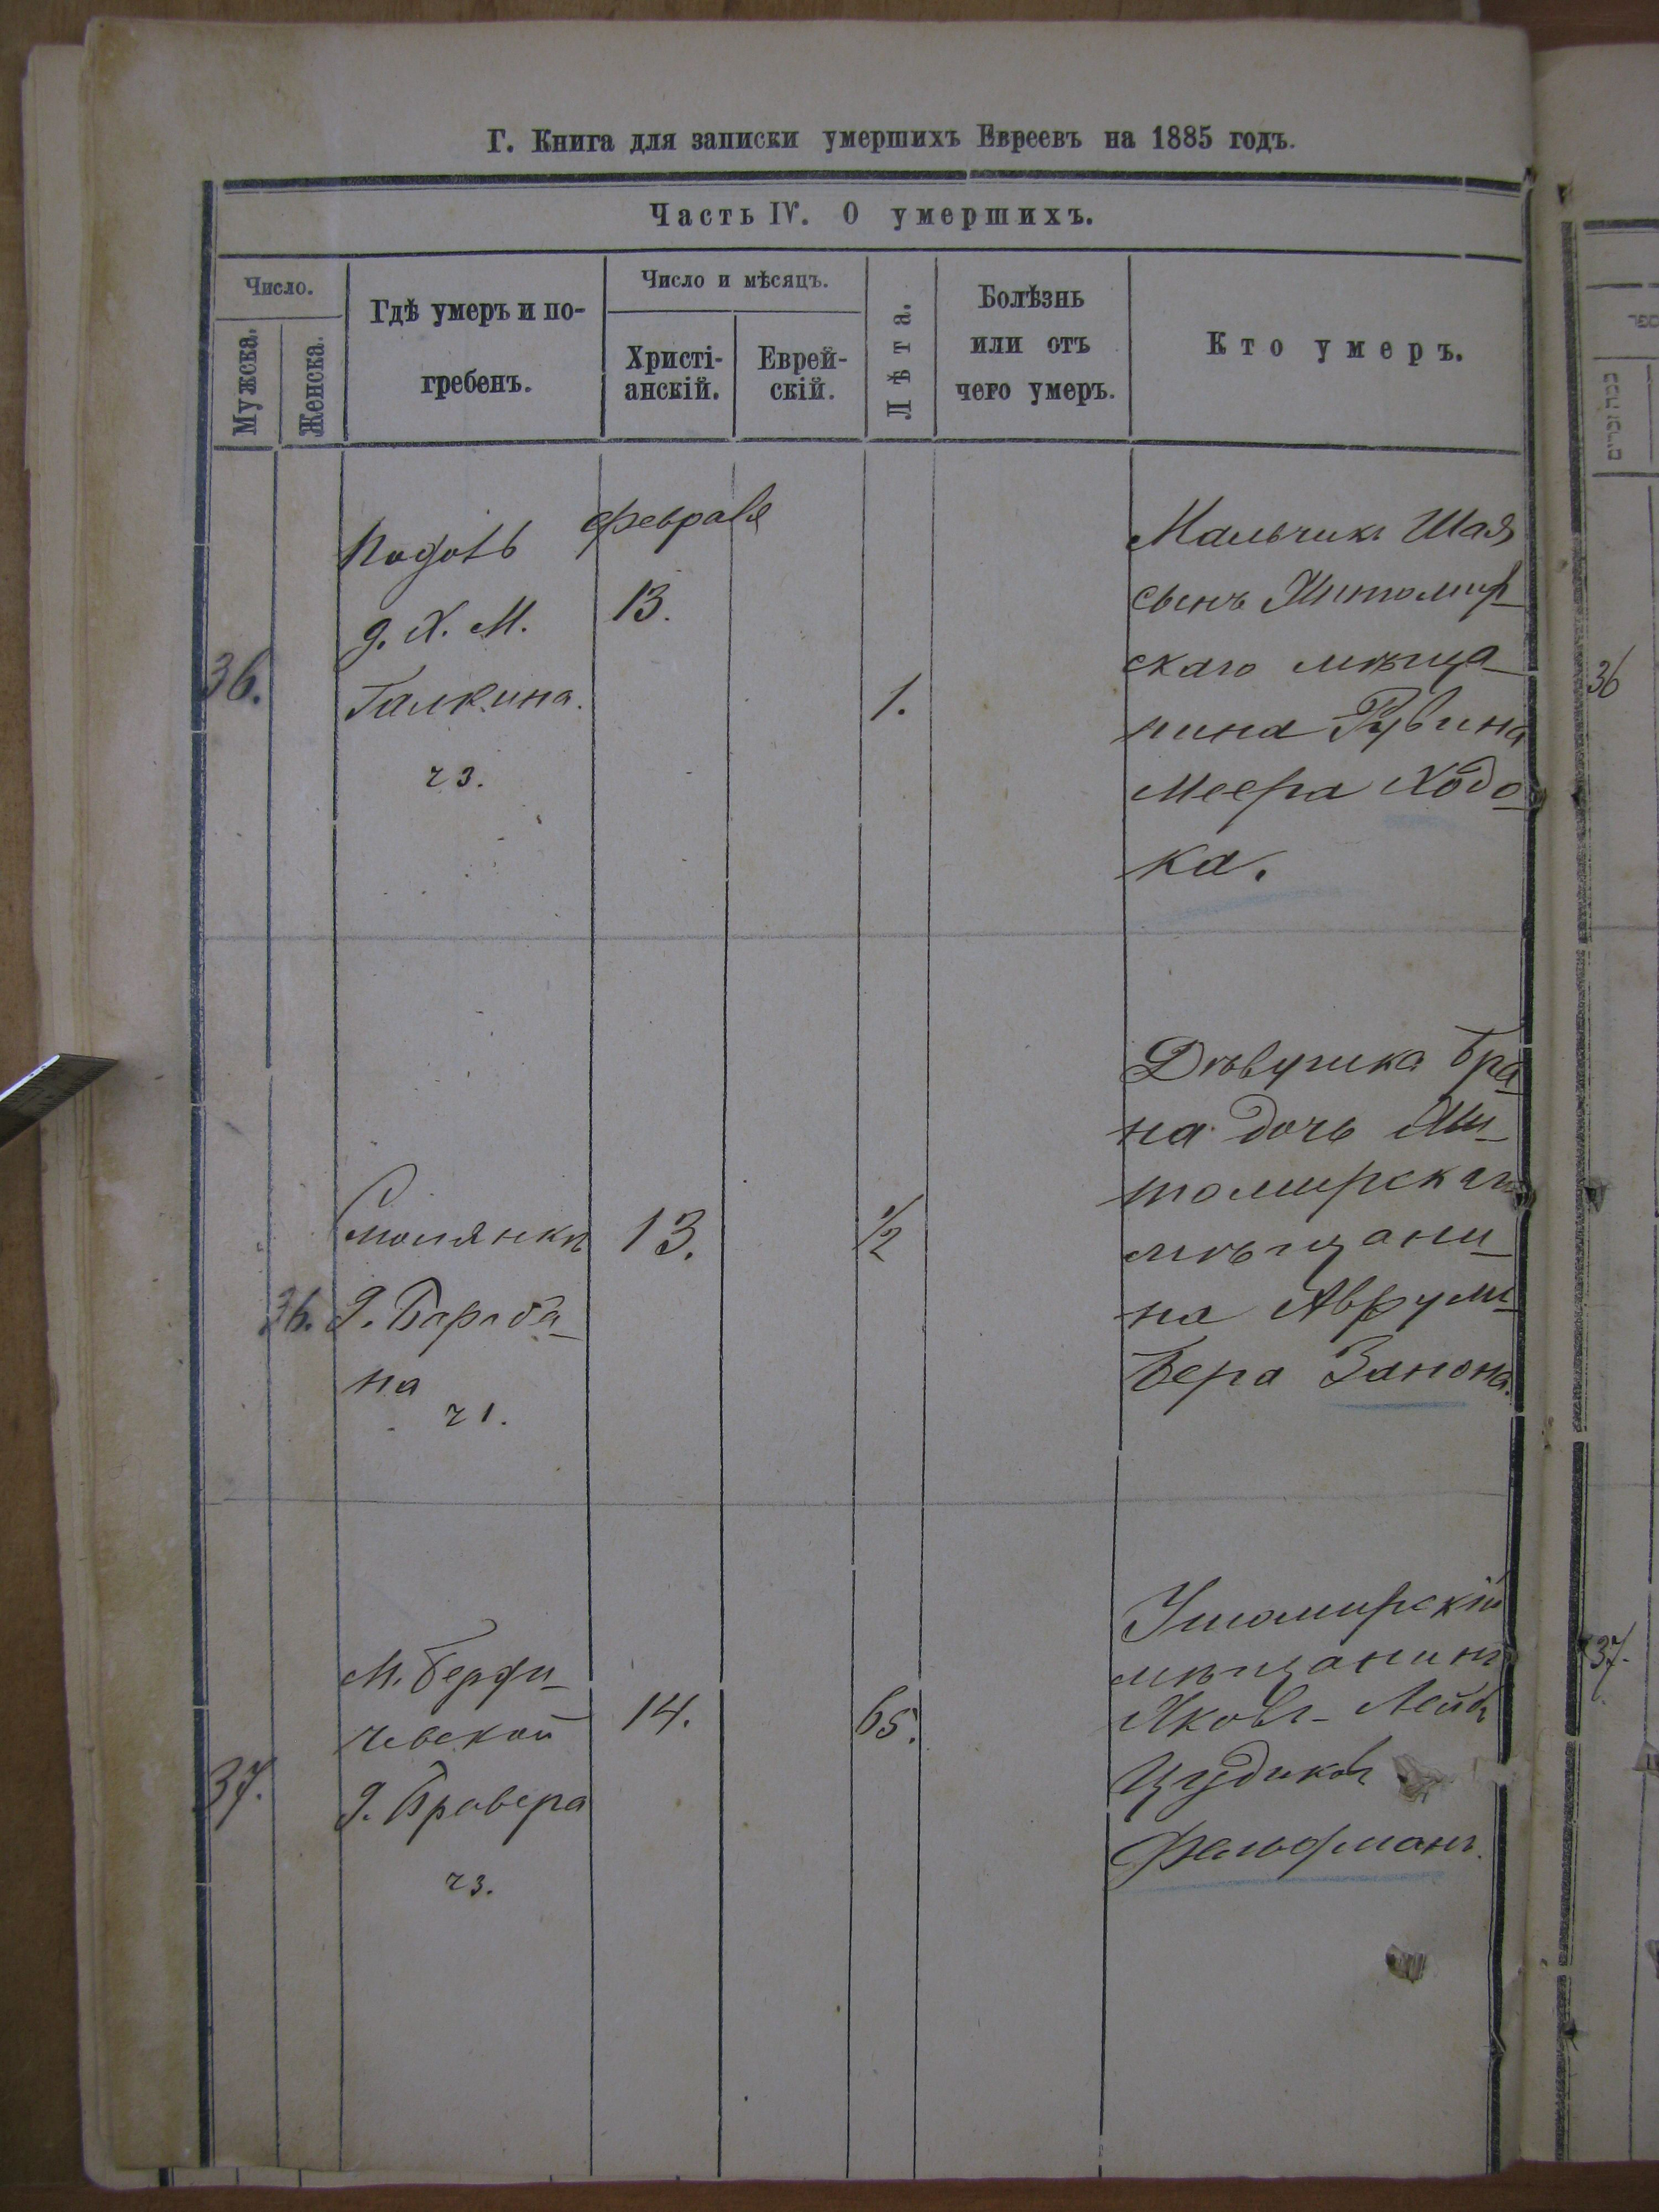 Г. Книга для записки умершихъ Евреевъ на 1885 годъ.
Часть IV. О умершихъ.
Число.
Мужска.
Женска.
Гдѣ умеръ и по-
гребенъ.
Число и мѣсяцъ.
Христі-
анскій.
Еврей-
скій.
Лѣта.
Болѣзнь
или отъ
чего умеръ.
Кто умеръ.
36.
д. Х. М.
Галкина.
ч 3.
февраля
13.
1.
Мальчикъ Шая
сынъ Житомир-
скаго мѣща-
нина Рувина
Меера Ходо-
ка.
36
36.
Смолянка
д. Бараба-
на
ч 1.
13.
1/2
Дѣвушка Бра-
на дочь Жи-
томирскаго
мѣщани-
на Аврум-
Бера Занона.
37.
М. Берди-
чевской
д. Бравера
ч3.
14.
65.
Ушомирскій
мѣщанинъ
Яковъ-Лейб
Цудиковъ
Фельдманъ.
37.